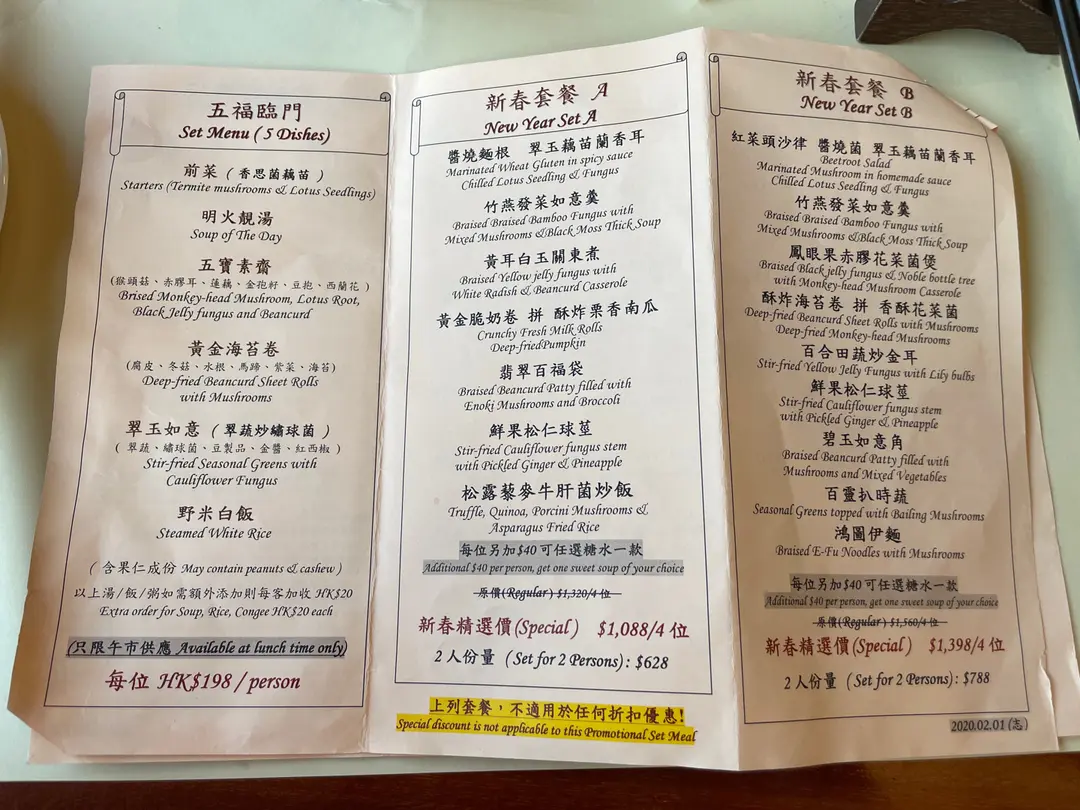 五福臨門
Set Menu ( 5 Dishes)
前菜 ( 香思菌藕苗 )
Starters (Termite mushrooms & Lotus Seedlings)
明火靚湯
Soup of The Day
五寶素齋
(猴頭菇、赤膠耳、蓮藕、金菇籽、豆抱、西蘭花 )
Brised Monkey-head Mushroom, Lotus Root,
Black Jelly fungus and Beancurd
黃金海苔卷
(腐皮、冬菇、水根、馬蹄、紫菜、海苔)
Deep-fried Beancurd Sheet Rolls
with Mushrooms
翠玉如意 ( 翠蔬炒繡球菌 )
( 翠蔬、繡球菌、豆製品、金醬、紅西椒 )
Stir-fried Seasonal Greens with
Cauliflower Fungus
野米白飯
Steamed White Rice
( 含果仁成份 May contain peanuts & cashew )
以上湯/飯/粥如需額外添加則每客加收 HK$20
Extra order for Soup, Rice, Congee HK$20 each
(只限午市供應 Available at lunch time only)
每位 HK$198 / person
新春套餐 A
New Year Set A
醬燒麵根 翠玉藕苗蘭香耳
Marinated Wheat Gluten in spicy sauce
Chilled Lotus Seedling & Fungus
竹燕發菜如意羹
Braised Braised Bamboo Fungus with
Mixed Mushrooms &Black Moss Thick Soup
黃耳白玉關東煮
Braised Yellow jelly fungus with
White Radish & Beancurd Casserole
黃金脆奶卷 拼 酥炸栗香南瓜
Crunchy Fresh Milk Rolls
Deep-friedPumpkin
翡翠百福袋
Braised Beancurd Patty filled with
Enoki Mushrooms and Broccoli
鮮果松仁球莖
Stir-fried Cauliflower fungus stem
with Pickled Ginger & Pineapple
松露藜麥牛肝菌炒飯
Truffle, Quinoa, Porcini Mushrooms &
Asparagus Fried Rice
每位另加$40 可任選糖水一款
Additional $40 per person, get one sweet soup of your choice
原價(Regular) $1,320/4 位
新春精選價(Special) $1,088/4 位
2 人份量 (Set for 2 Persons): $628
上列套餐，不適用於任何折扣優惠!
Special discount is not applicable to this Promotional Set Meal
新春套餐 B
New Year Set B
紅菜頭沙律 醬燒菌 翠玉藕苗蘭香耳
Beetroot Salad
Marinated Mushroom in homemade sauce
Chilled Lotus Seedling & Fungus
竹燕發菜如意羹
Braised Braised Bamboo Fungus with
Mixed Mushrooms &Black Moss Thick Soup
鳳眼果赤膠花菜菌煲
Braised Black jelly fungus & Noble bottle tree
with Monkey-head Mushroom Casserole
酥炸海苔卷 拼 香酥花菜菌
Deep-fried Beancurd Sheet Rolls with Mushrooms
Deep-fried Monkey-head Mushrooms
百合田蔬炒金耳
Stir-fried Yellow Jelly Fungus with Lily bulbs
鮮果松仁球莖
Stir-fried Cauliflower fungus stem
with Pickled Ginger & Pineapple
碧玉如意角
Braised Beancurd Patty filled with
Mushrooms and Mixed Vegetables
百靈扒時蔬
Seasonal Greens topped with Bailing Mushrooms
鴻圖伊麵
Braised E-Fu Noodles with Mushrooms
每位另加$40 可任選糖水一款
Additional $40 per person, get one sweet soup of your choice
原價(Regular) $1,560/4 位
新春精選價(Special) $1,398/4 位
2 人份量 (Set for 2 Persons): $788
2020.02.01 (志)